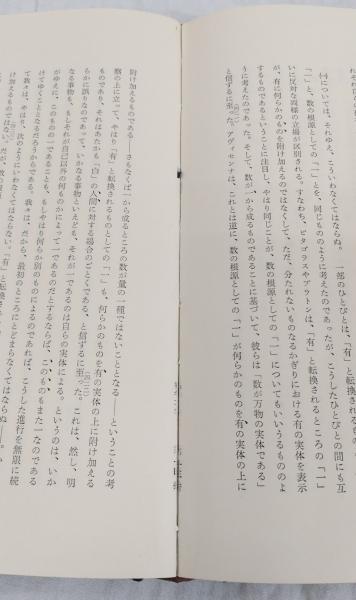 (一)については、それゆえ、こういわなくてはならぬ。――一部のひとびとは、「有」と転換されるところの「一」
「一」と、数の根源としての「一」とを、同じもののように考えたのであったが、こうしたひとびとの間にも互
いに反対な両様の立場が区別される。すなわち、ピタゴラスやプラトーンは、「有」と転換されるところの「一」
が、有に何らかのものを附け加えるのではなくして、ただ、分たれないものなるかぎりにおける有の実体を表示
するものであるということに注目し、やはり同じことが、数の根源としての「一」についてもいいうるもののよ
うに考えた。そして、数が一から成るものであることに基づいて、彼らは「数が万物の実体である」
と信ずるに至った。アヴィセンナは、これとは逆に、数の根源としての「一」が何らかのものを有の実体の上に
附け加えるものである――さもなくば一から成るところの数が量の一種ではないこととなる――ということの考
察の上に立って、やはり「有」と転換されるものとしての「一」も、何らかのものを有の実体の上に附け加える
ものであり、それはあたかも「白」の人間に対する場合のごとくである、と信ずるに至った。これは、然し、明
らかに誤りなのであって、いかなる事物といえども、それが一であるのは自らの実体による。というのは、いか
なる事物も、もしそれが自己以外の何ものかによって一であるのだとするならば、このものもまた一なのである
がゆえに、このものの一であることも、もしやはり何らか別のものによるのであれば、こうした進行を無限に続
けてゆくこととなるだろうからである。我々は、だから、最初のところにとどまらなくてはならぬ――。
て我々は、やはり、次のようにいわなくてはならない。「有」と転換さ
け加えるものではない。だが、数の根